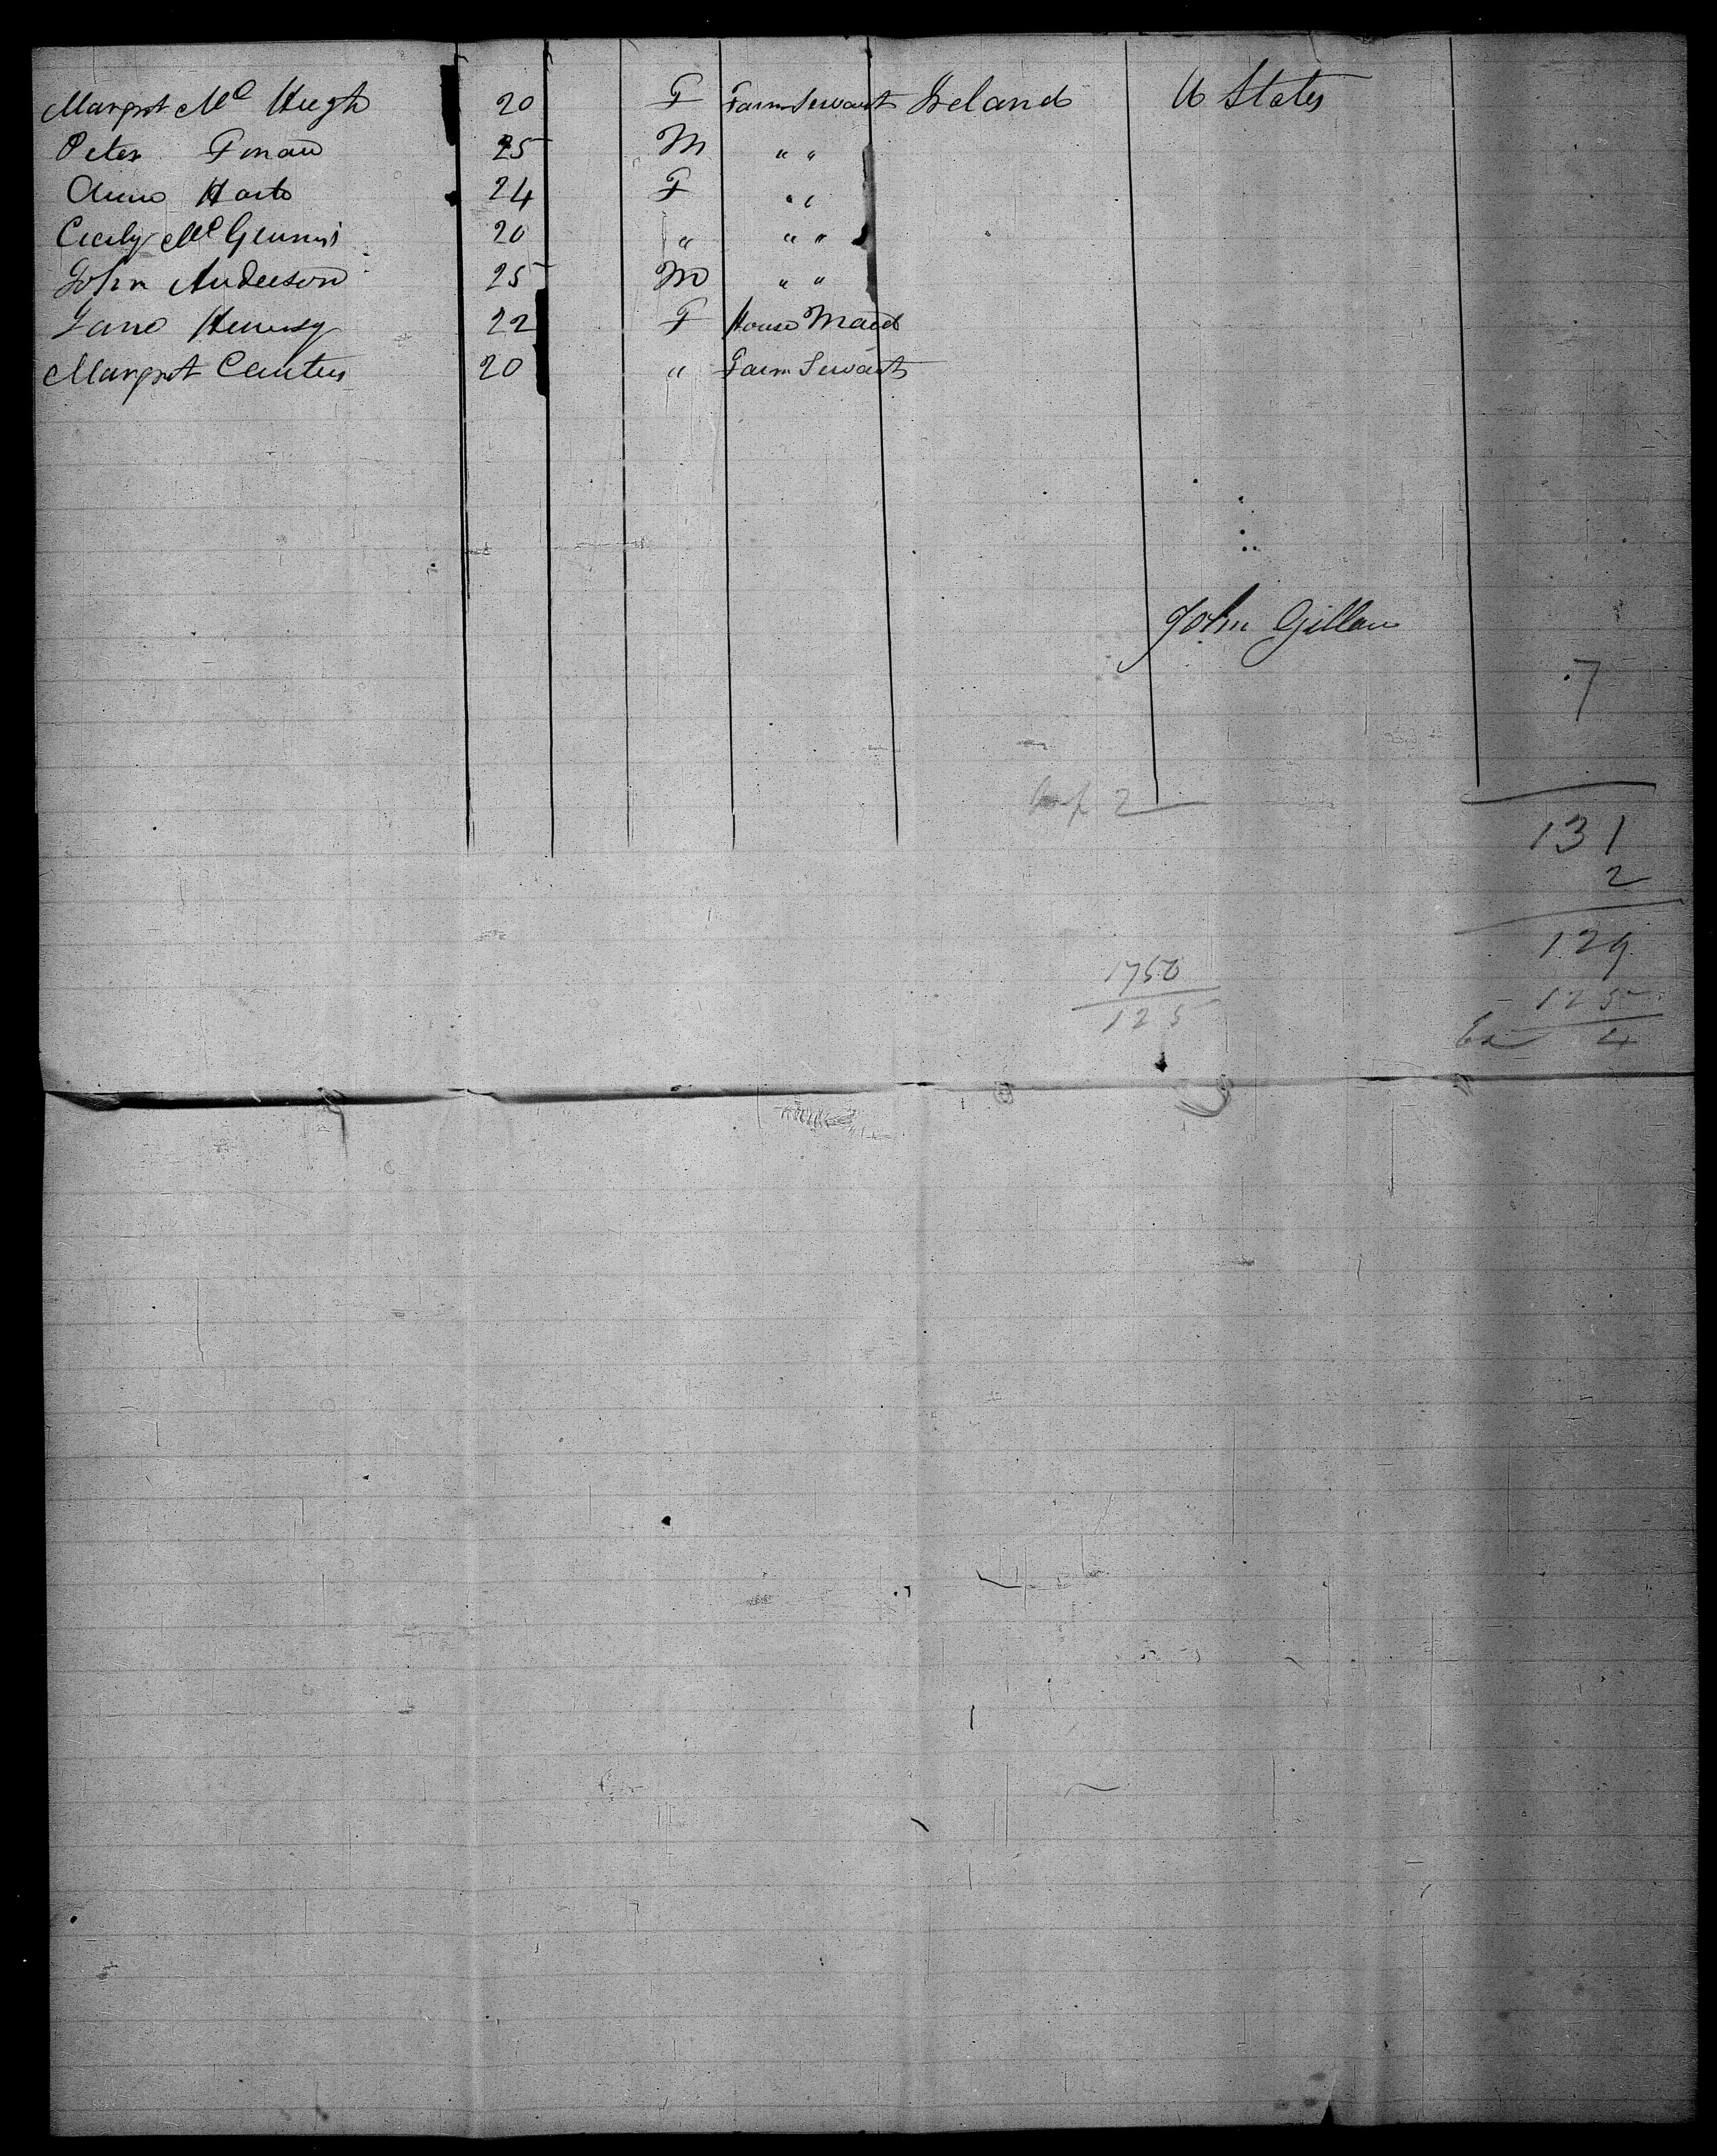 Margret Mc Hugh 20 F Farm Servant Ireland U States
Peter Finan 25 M " "
Anne Harte 24 F "
Cecily Mc Gennis 20 " " "
John Anderson 25 M " "
Jane Hennesy 22 F House Maid
Margret 20 " Farm Servant
John Gillan
7
Inf 2
131
2
129
1750
125
125
Ex 4